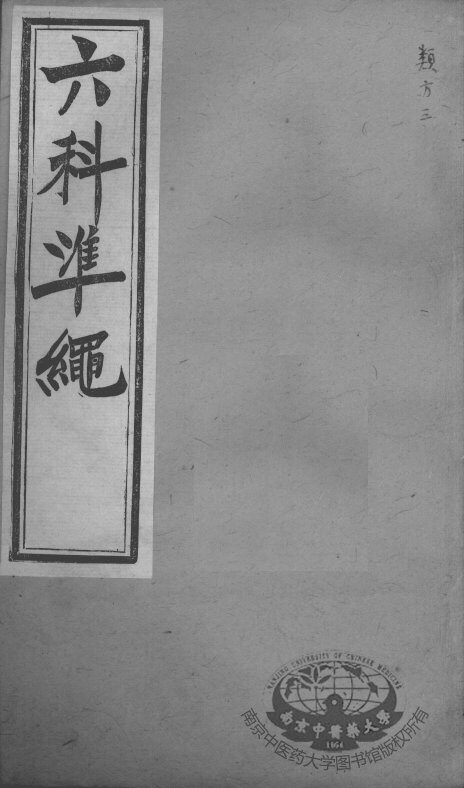 六科準繩
類方三
NANJING UNIVERSITY OF CHINESE MEDICINE
南京中醫藥大學
1954
南京中医药大学图书馆版权所有